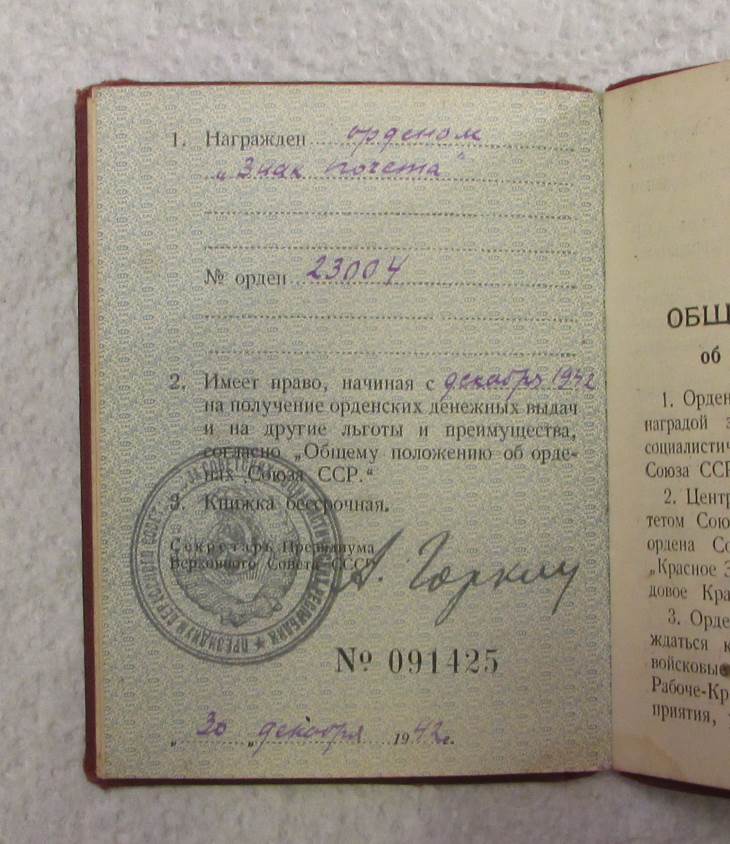 1. Награжден орденом
„Знак почета"
№ орден 23004
2. Имеет право, начиная с декабря 1942
на получение орденских денежных выдач
и на другие льготы и преимущества,
согласно „Общему положению об орде-
нах Союза ССР.“
3. Книжка бессрочная.
Секретарь Президиума
Верховного Совета СССР
А. Горкин
№ 091425
„30 „ декабря 1942 г.
ПРЕЗИДИУМ ВЕРХОВНОГО СОВЕТА СОЮЗА СОВЕТСКИХ СОЦИАЛИСТИЧЕСКИХ РЕСПУБЛИК
ОБЩ
об
1. Орден
наградой з
социалистич
Союза ССР
2. Центр
тетом Сою
ордена Со
„Красное З
довое Кра
3. Орде
ждаться к
войсковые
Рабоче-Кр
приятия,